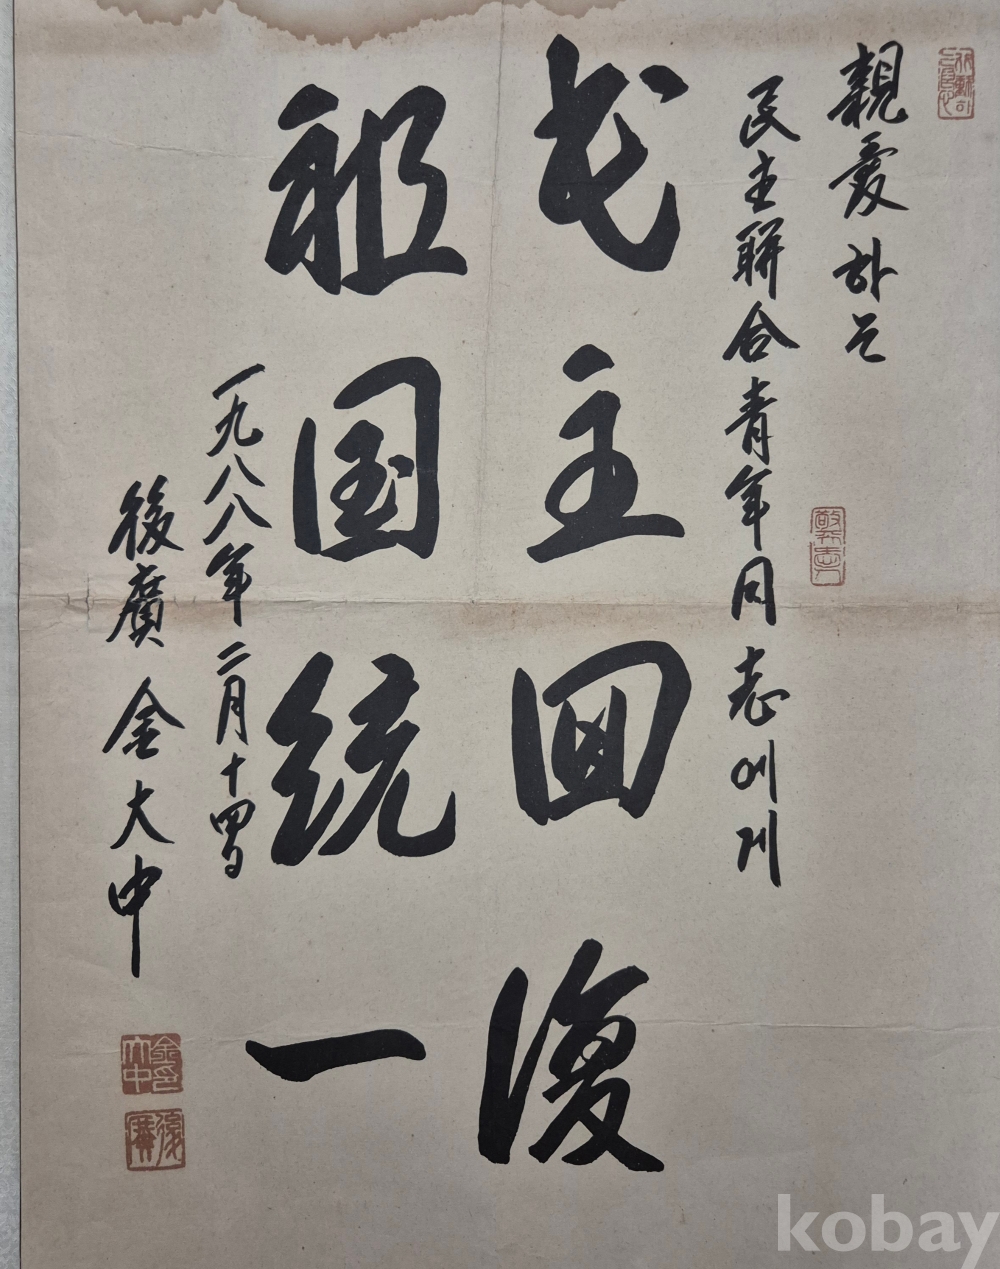 親愛하는
民主聯合青年同志에게
民主回復
祖国統一
一九八八年二月十四日
後廣 金大中
金大中印
後廣
kobay